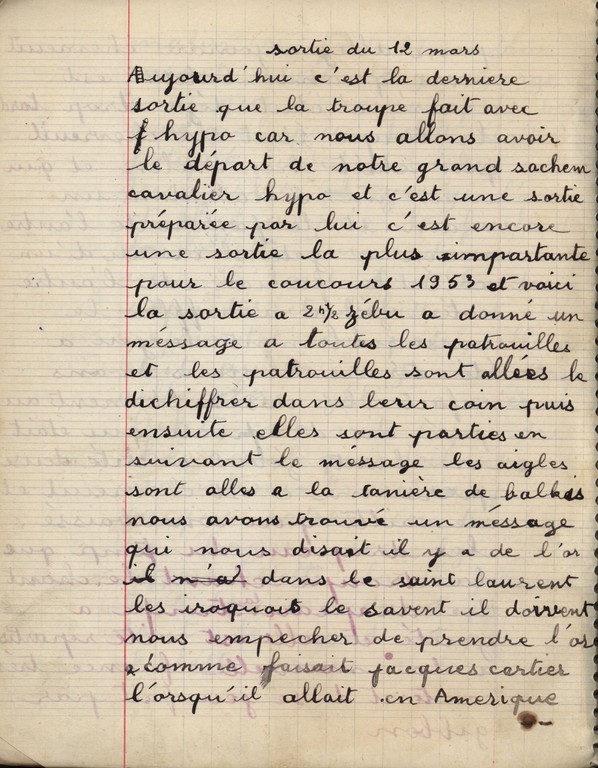 sortie du 12 mars
Aujourd'hui c'est la derniere
sortie que la troupe fait avec
hypo car nous allons avoir
le départ de notre grand sachem
cavalier hypo et c'est une sortie
préparée par lui c'est encore
une sortie la plus impartante
pour le coucours 1953 et voici
la sortie a 2 h 1/2 zébu a donné un
méssage a toutes les patrouilles
et les patrouilles sont allées le
dichiffrér dans leur coin puis
ensuite elles sont parties en
suivant le méssage les aigles
sont alles a la tanière de balkis
nous avons trouvé un méssage
qui nous disait il y a de l'or
il n'a dans le saint laurent
les iroquois le savent il doivent
nous empecher de prendre l'or
comme faisait jacques cartier
l'orsqu'il allait en Amerique